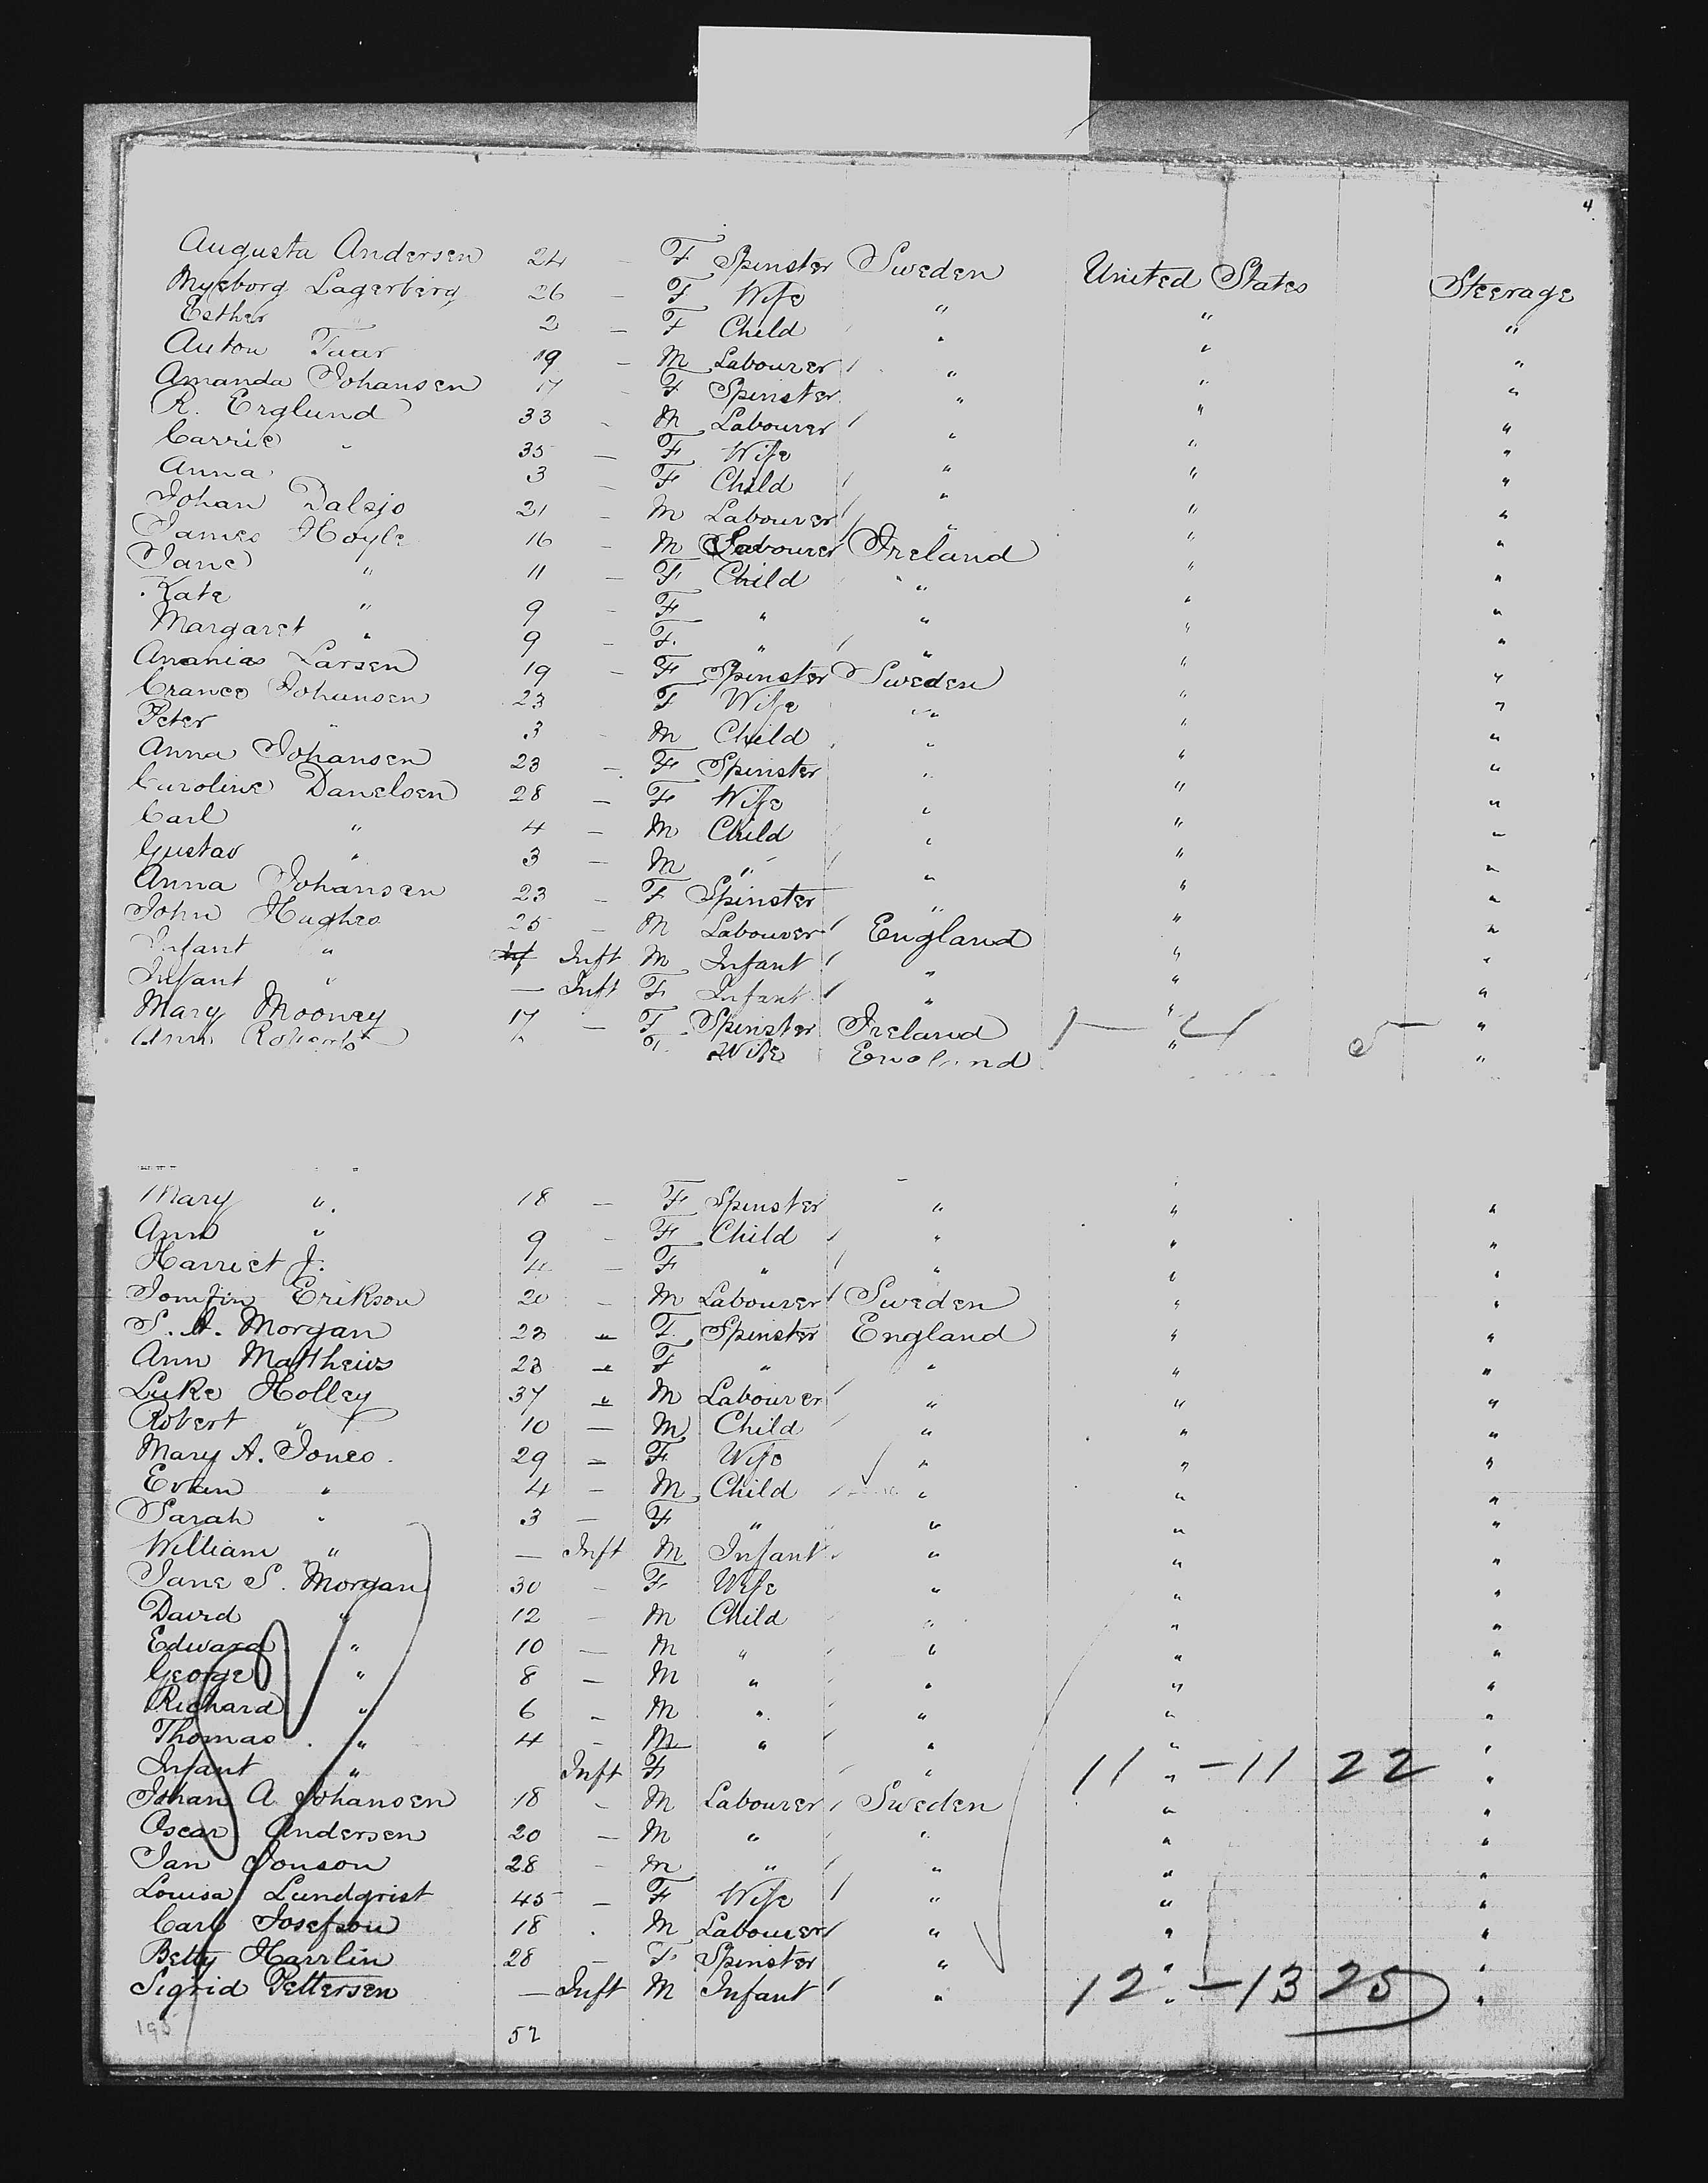 4
Augusta Andersen 24 - F Spinster Sweden United States Steerage
Lagerberg 26 - F Wife " " "
Esther 2 - F Child " " "
Anton 19 - M Labourer " " "
Amanda Johansen 17 - F Spinster " " "
R. Erglund 33 - M Labourer " " "
Carrie " 35 - F Wife " " "
Anna 3 - F Child " " "
Johan Dalsjo 21 - M Labourer " " "
James Hoyle 16 - M Labourer Ireland " "
Jane " 11 - F Child " " "
Kate " 9 - F " " " "
Margaret " 9 - F. " " " "
Ananias Larsen 19 - F Spinster Sweden " "
Johansen 23 F Wife " " "
Peter " 3 - M Child " " "
Anna Johansen 23 - F Spinster " " "
Caroline Danelsen 28 - F Wife " " "
Carl " 4 - M Child " " "
Gustav " 3 - M " " " "
Anna Johansen 23 - F Spinster " " "
John Hughes 25 - M Labourer England " "
Infant " Inft M Infant " " "
Infant " - Inft F Infant " " "
Mary Mooney 17 - F Spinster Ireland 1 - " 4 5 "
Ann Roberts F. Wife England " "
Mary " 18 - F Spinster " " "
Ann " 9 - F Child " " "
Harriet J. 4 - F " " " "
Erikson 20 - M Labourer Sweden " "
S. A. Morgan 23 " F. Spinster England " "
Ann Matthews 23 " F " " " "
Luke Holley 37 " M Labourer " " "
Robert " 10 - M Child " " "
Mary A. Jones 29 - F Wife " " "
Evan " 4 - M Child " " "
Sarah " 3 - F " " " "
William " - Inft M Infant " " "
Jane S. Morgan 30 - F Wife " " "
David " 12 - M Child " " "
Edward " 10 - M " " " "
George " 8 - M " " " "
Richard " 6 - M " " " "
Thomas " 4 - M " " " "
Infant " Inft F " 11 " - 11 22 "
Johan A Johansen 18 - M Labourer Sweden " "
Oscar Andersen 20 - M " " " "
Jan Jonson 28 - M " " " "
Louisa Lundqrist 45 - F Wife " " "
Carl Josefson 18 . M Labourer " " "
Betty Harrlin 28 - F Spinster " " "
Sigrid Pettersen - Inft M Infant " 12 " - 13 25 "
195 52